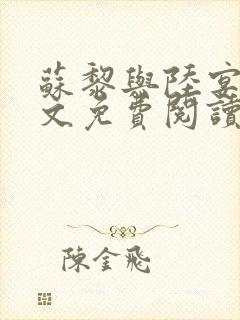 蘇黎與陸宴
文免費閱讀
陳金飛